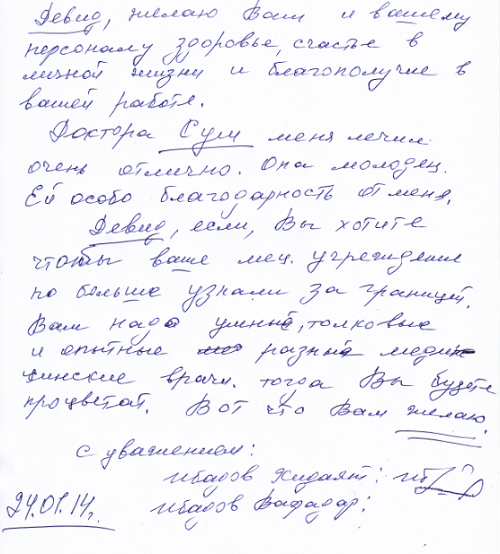 Девид, желаю Вам и вашему
персоналу здоровье, счастье в
личной жизни и благополучие в
вашей работе.
Доктора Сум меня лечил
очень отлично. Она молодец.
Ей особо благодарность от меня.
Девид, если, Вы хотите
чтобы ваше мед. учреждения
по больше узнали за границей.
Вам надо умные, толковые
и опытные разные меди-
цинские врачи. тогда Вы будете
процветат. Вот что Вам желаю.
с уважением:
Ибадов Хидаят:
24.01.14г. Ибадов Вафадар: